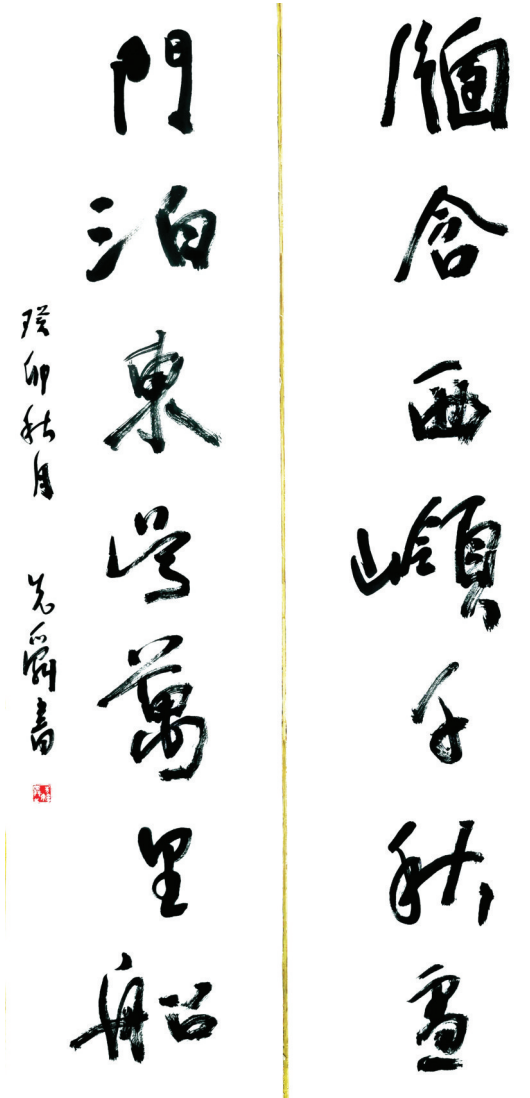 牕含西嶺千秋雪
門泊東吳萬里船
癸卯秋月
書